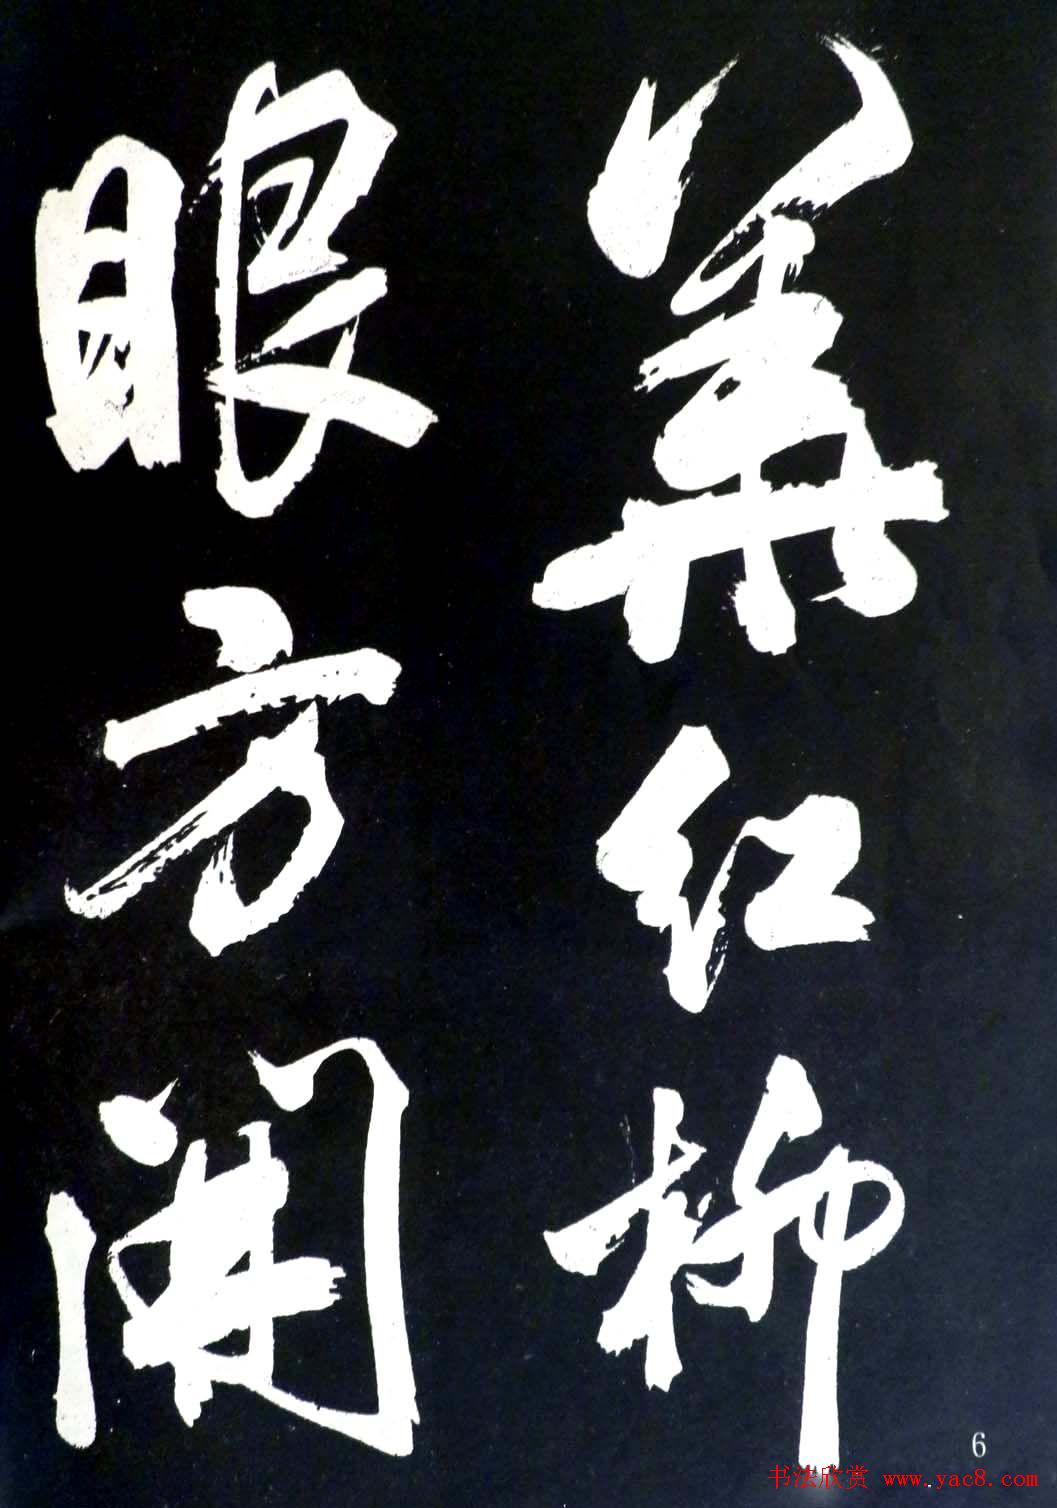 红柳
眼方开
6
书法欣赏 www.yac8.com